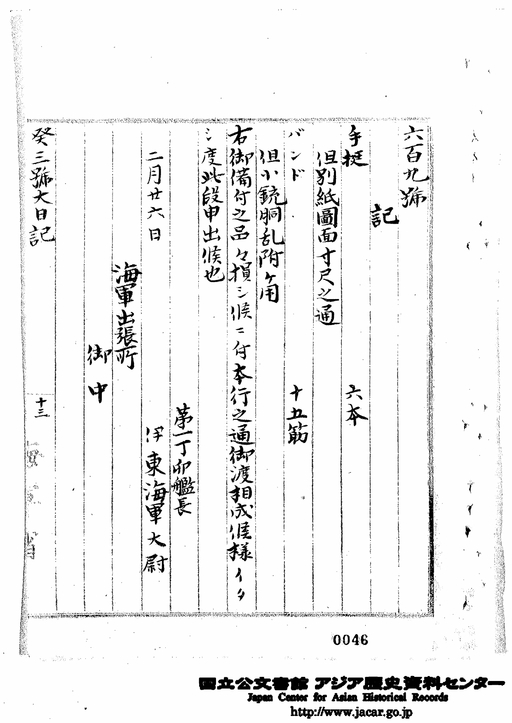 六百九號
記
手挺 六本
但別紙圖面寸尺之通
バンド 十五筋
但小銃胴乱附ケ用
右御備付之品々損シ候ニ付本行之通御渡相成候様イタ
シ度此段申出候也
二月廿六日
第一丁卯艦長
伊東海軍大尉
海軍出張所
御中
癸三號大日記
十三
0046
国立公文書館 アジア歴史資料センター
Japan Center for Asian Historical Records
http://www.jacar.go.jp